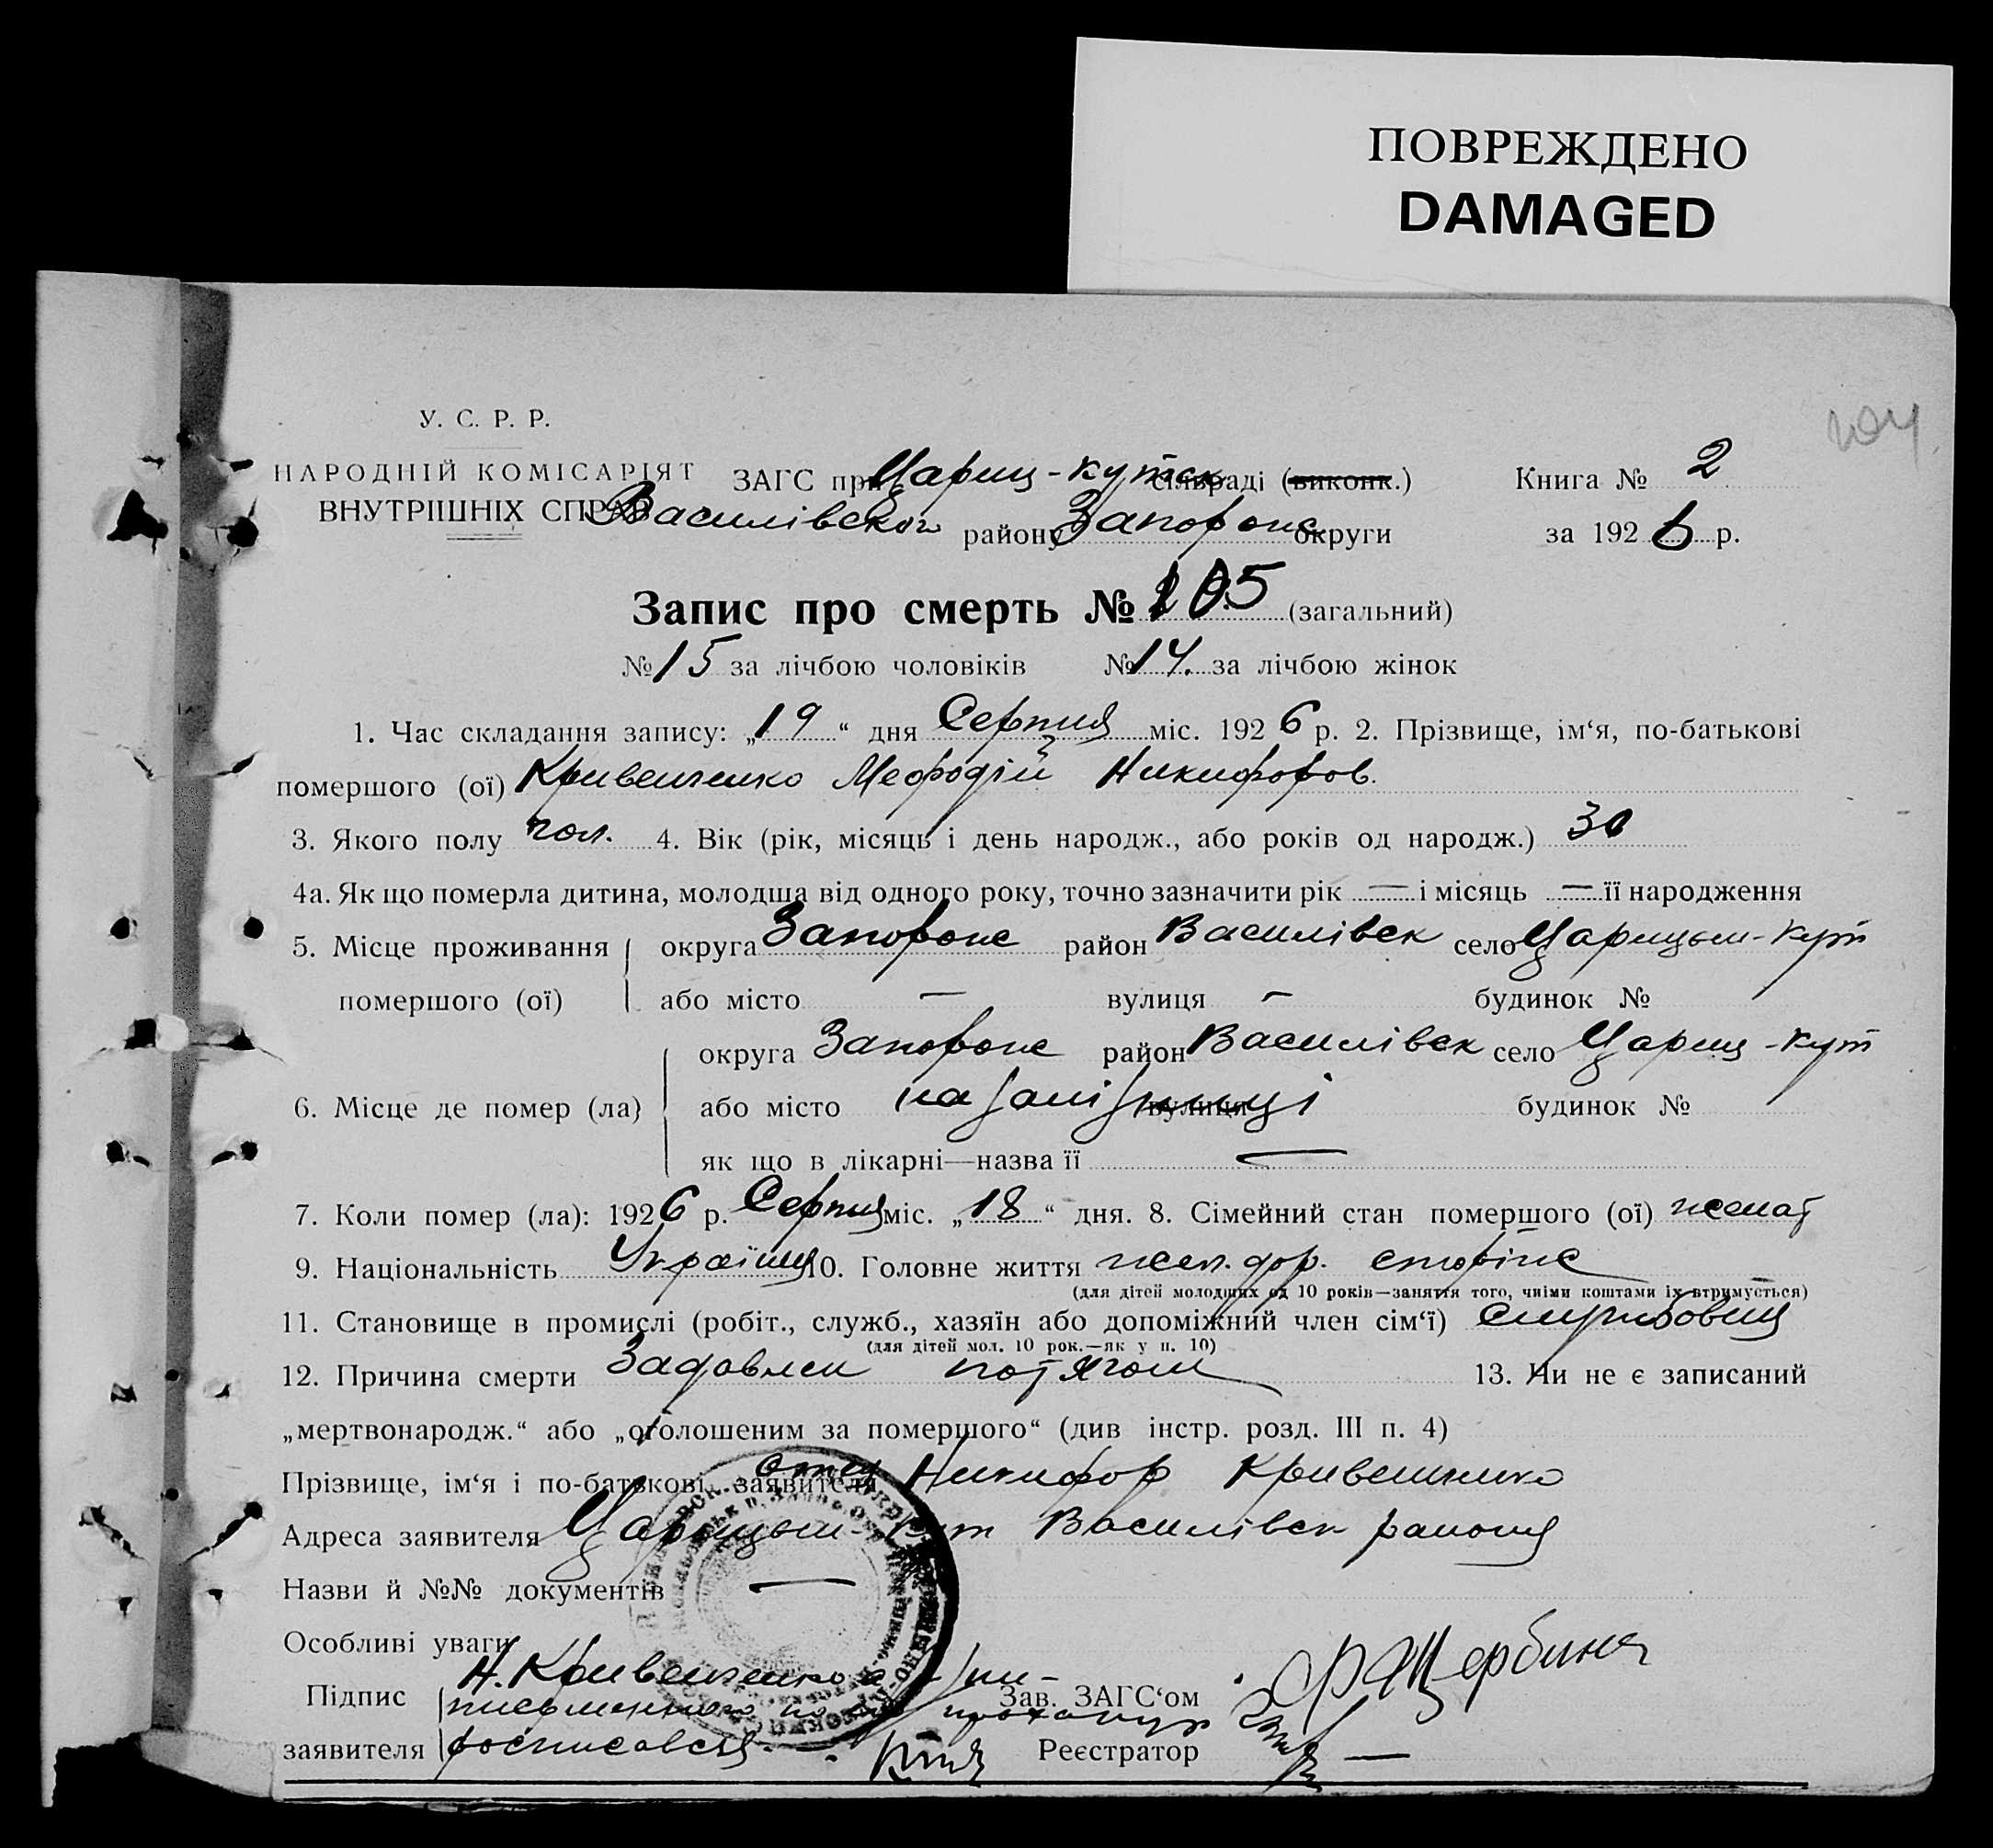 ПОВРЕЖДЕНО
DAMAGED
У. С. Р. Р.
НАРОДНІЙ КОМІСАРІЯТ
ВНУТРІШНІХ СПРАВ
ЗАГС при Цариц-кутск сільраді (виконк.) Книга № 2
Василівского району Запорожс округи за 1926 р.
Запис про смерть № 205 (загальний)
№ 15 за лічбою чоловіків № 14. за лічбою жінок
1. Час складання запису: „19“ дня Серпня міс. 1926 р. 2. Прізвище, ім‘я, по-батькові
помершого (ої) Кривенченко Мефодій Никифоров.
3. Якого полу чол. 4. Вік (рік, місяць і день народж., або років од народж.) 30
4а. Як що померла дитина, молодша від одного року, точно зазначити рік — і місяць — її народження
5. Місце проживання помершого (ої) округа Запорожс район Василівск село Царицын-Кут
або місто — вулиця - будинок №
6. Місце де помер (ла) округа Запорожс район Василівск село Цариц-Кут
або місто на залізниці вулиця будинок №
як що в лікарні—назва її —
7. Коли помер (ла): 1926 р. Серпня міс. „18“ дня. 8. Сімейний стан помершого (ої) женат
9. Національність Україн. 10. Головне життя жел. дор. сторож
(для дітей молодших од 10 років—заняття того, чиїми коштами їх втримується)
11. Становище в промислі (робіт., служб., хазяїн або допоміжний член сім‘ї) службовец
(для дітей мол. 10 рок.—як у п. 10)
12. Причина смерти Задавлен потягом 13. Чи не є записаний
„мертвонародж.“ або „оголошеним за помершого“ (див інстр. розд. III п. 4)
Прізвище, ім‘я і по-батькові заявителя отец Никифор Кривенченко
Адреса заявителя Царицын-Кут Василівск района
Назви й №№ документів —
Особливі уваги
Підпис заявителя Н. Кривенченко а
Зав. ЗАГС‘ом Щербина
росписався
Реєстратор —